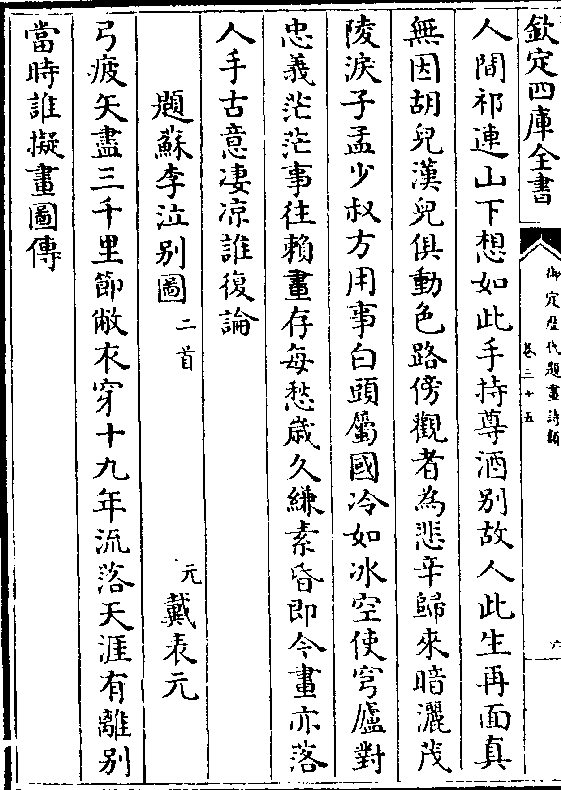 欽定四庫全書
御定歷代題畫詩類
卷三十五
六
人間祁連山下想如此手持尊酒别故人此生再面真
無因胡兒漢兒俱動色路傍觀者為悲辛歸來暗灑茂
陵淚子孟少叔方用事白頭屬國冷如冰空使穹廬對
忠義茫茫事往賴畫存每愁歲久縑素昏即今畫亦落
人手古意凄凉誰復論
題蘇李泣别圖二首 元戴表元
弓疲矢盡三千里節敝衣穿十九年流落天涯有離别
當時誰擬畫圖傳